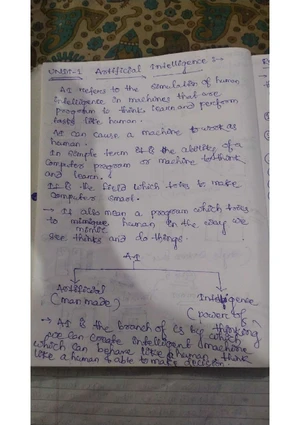 UNIT-1 Artificial Intelligence :-
AI refers to the simulation of human
intelligence in machines that are
program to think, learn and perform
tasks like human.
AI can cause a machine to work as
human.
In simple term it is the abilities of a
computer program or machine to think
and learn.
It is the field which tries to make
computer smart.
→ It also mean a program which tries
to mimic human in the way we
see thinks and do things.
AI
Artificial Intelligence
(man made) (power of
thinking
→ AI is the branch of CS by which
we can create intelligent machine
which can behave like a human, think
like a human & able to make decision